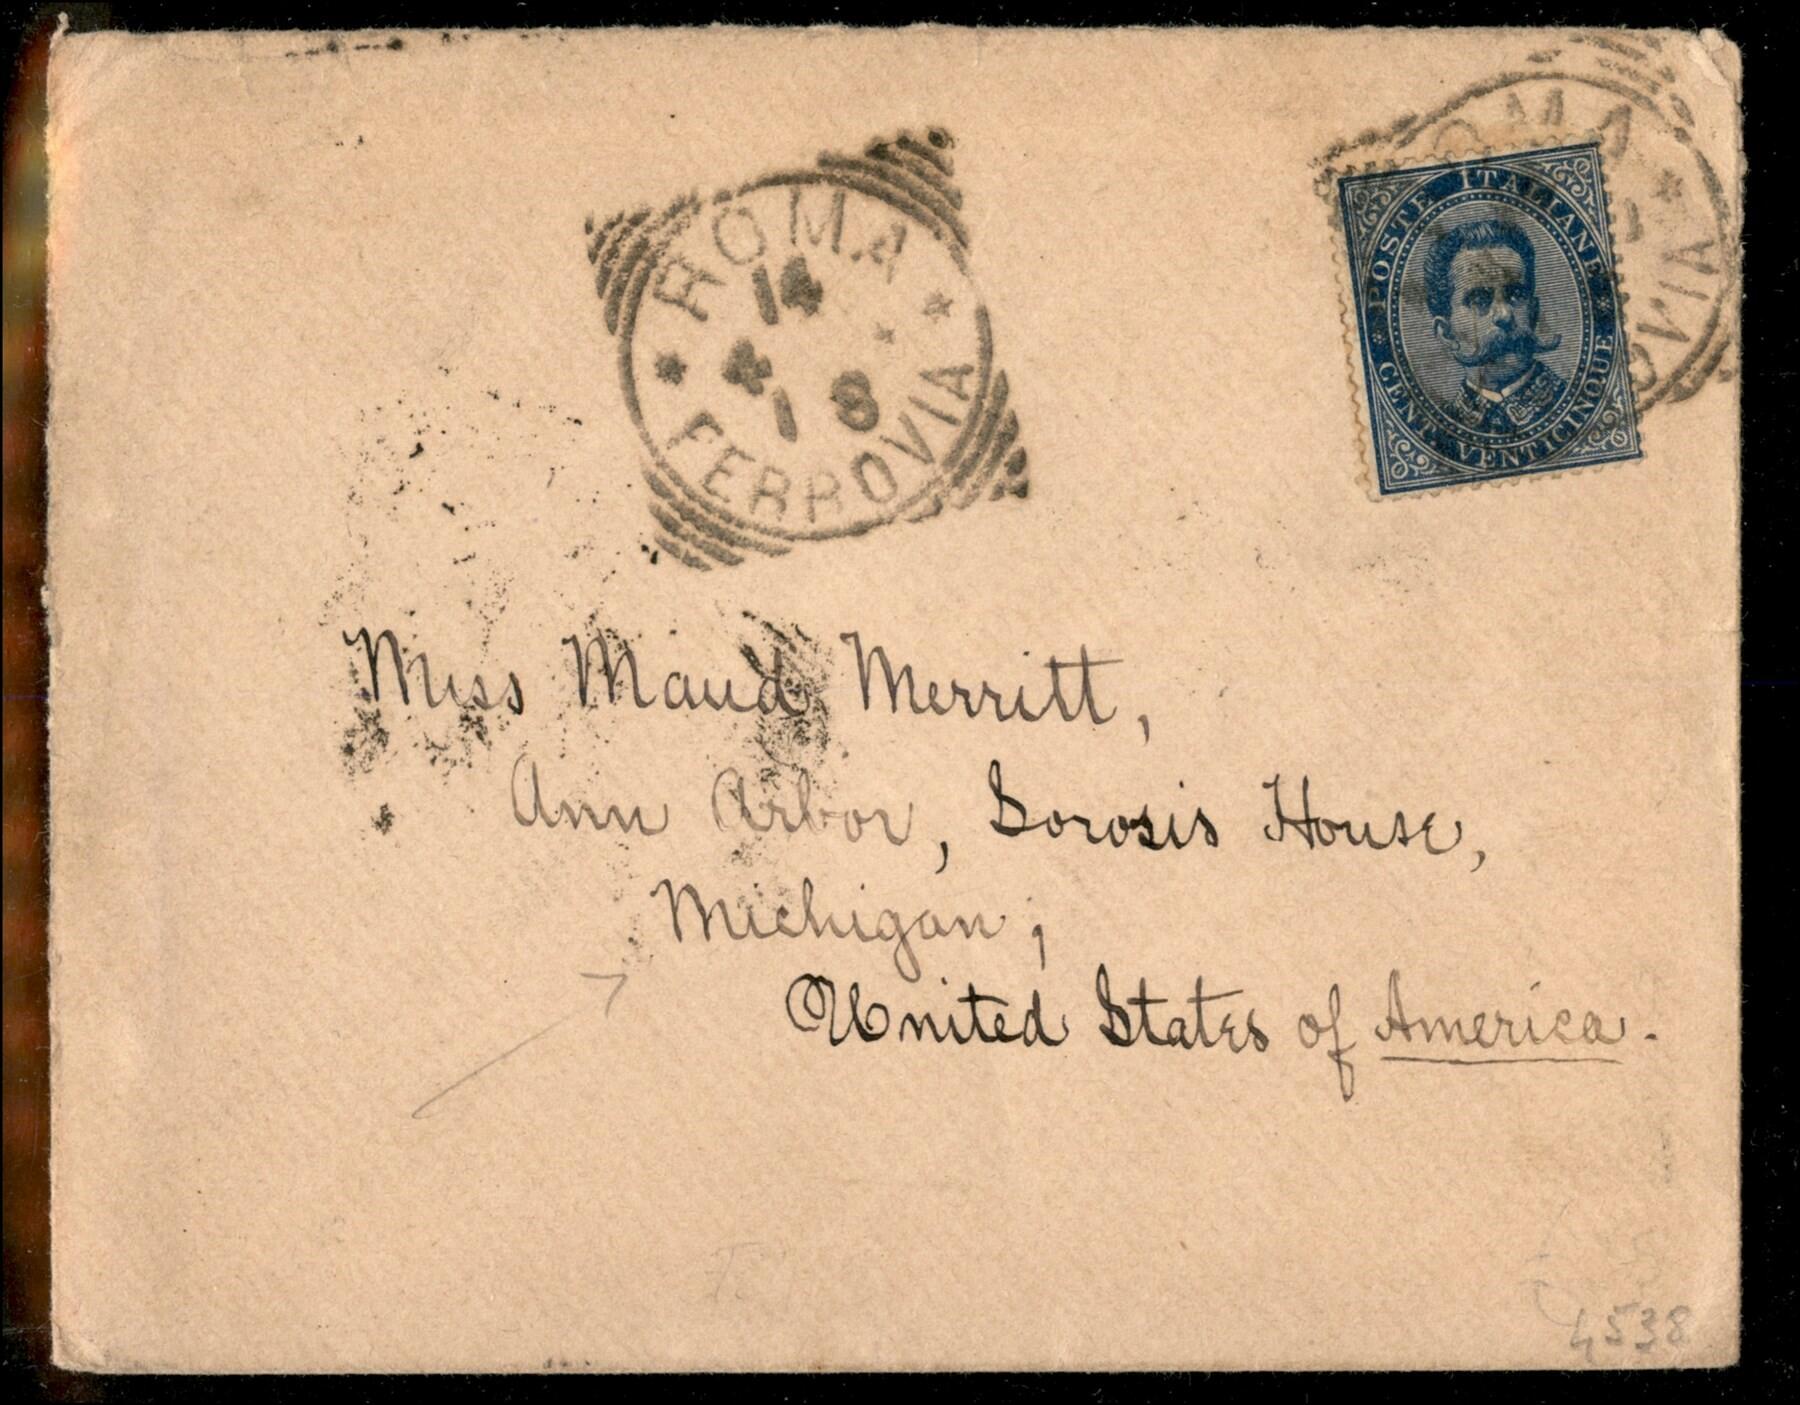 ROMA
14
4
1 8
FERROVIA
OMA
OVIA
POSTE ITALIANE
CENT. VENTICINQUE
Miss Maud Merritt,
Ann Arbor, Sorosis House,
Michigan;
United States of America.
4538